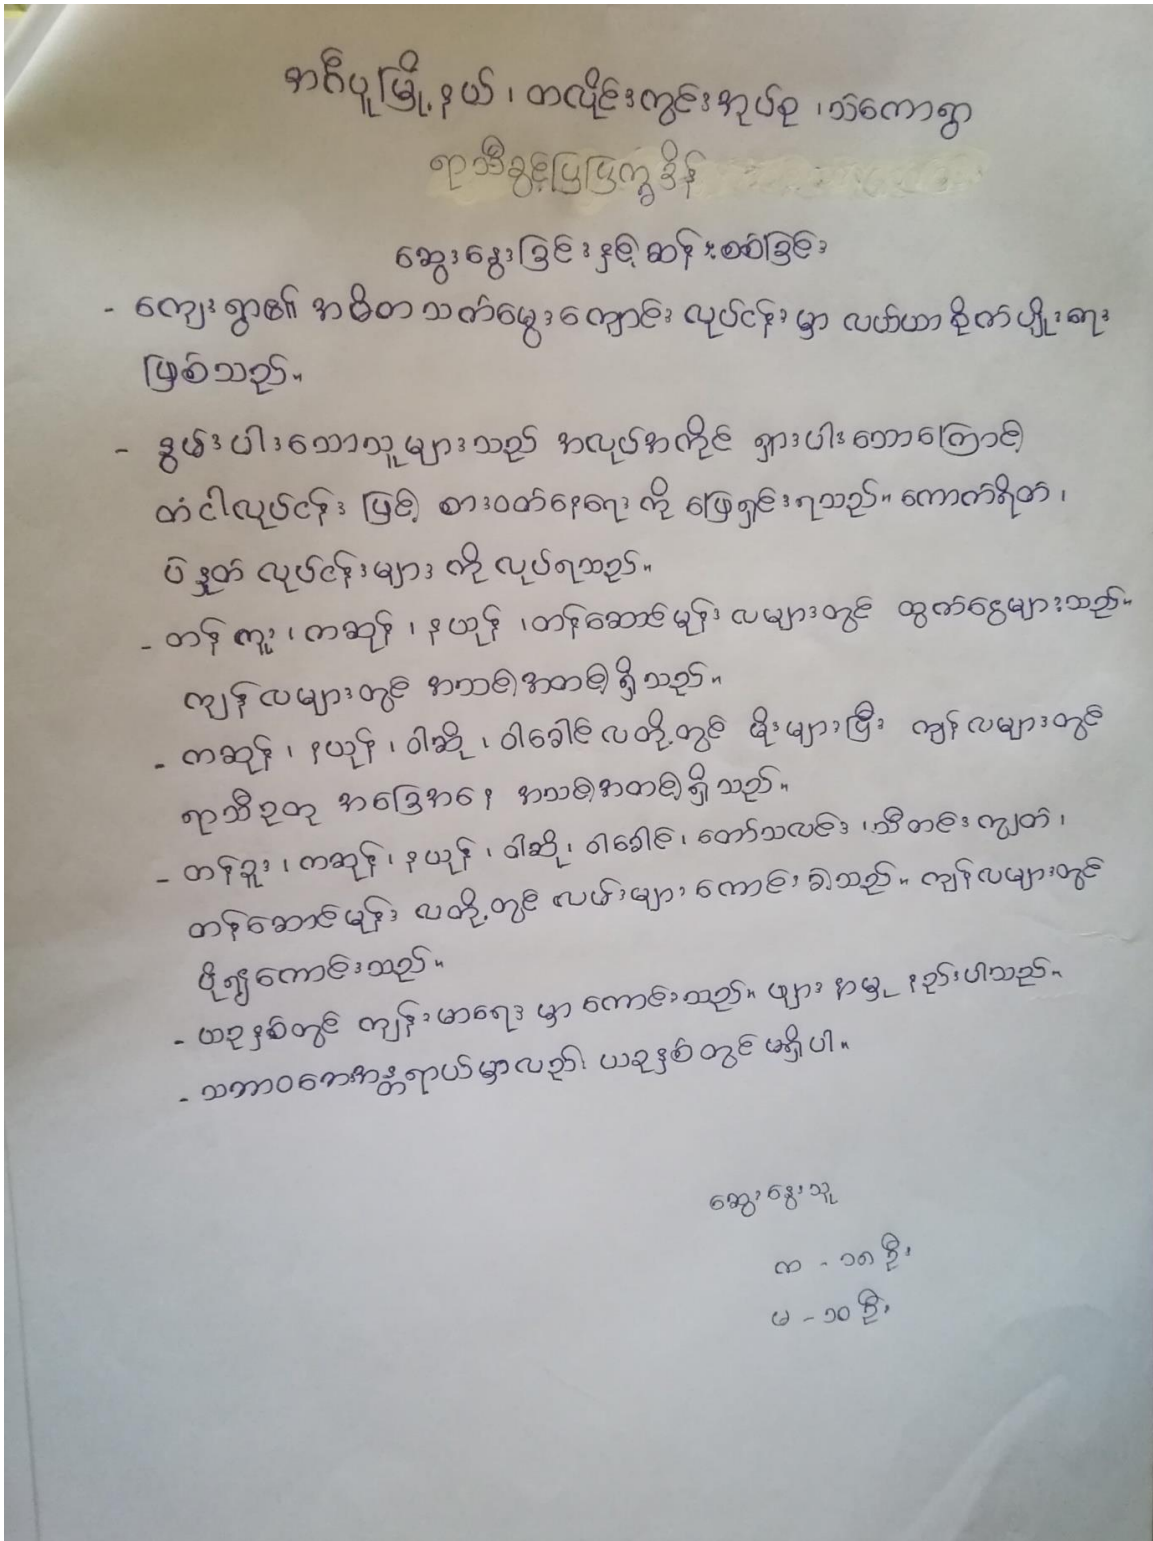 အင်္ဂပူမြို့နယ် ၊ တလိုင်းကွင်းအုပ်စု ၊ သဲကောရွာ
ရာသီခွင်ပြပြက္ခဒိန်
ဆွေးနွေးခြင်းနှင့်ဆန်းစစ်ခြင်း
- ကျေးရွာ၏ အဓိတသက်မွေးကျောင်း လုပ်ငန်းမှာ လယ်ယာစိုက်ပျိုးရေး
ဖြစ်သည်။
- နွမ်းပါးသောသူများသည် အလုပ်အကိုင် ရှားပါးသောကြောင့်
တံငါလုပ်ငန်း ဖြင့် စားဝတ်နေရေး ကို ဖြေရှင်းရသည်။ ကောက်ရိတ် ၊
ပဲနှုတ် လုပ်ငန်းများ ကို လုပ်ရသည်။
- တန်ကူး ၊ ကဆုန် ၊ နယုန် ၊ တန်ဆောင်မုန်း လများတွင် ထွက်ငွေများသည်။
ကျန်လများတွင် အသင့်အတင့်ရှိသည်။
- ကဆုန် ၊ နယုန် ၊ ဝါဆို ၊ ဝါခေါင် လတို့တွင် မိုးများပြီး ကျန်လများတွင်
ရာသီဥတု အခြေအနေ အသင့်အတင့်ရှိသည်။
- တန်ခူး ၊ ကဆုန် ၊ နယုန် ၊ ဝါဆို ၊ ဝါခေါင် ၊ တော်သလင်း ၊ သီတင်းကျွတ် ၊
တန်ဆောင်မုန်း လတို့တွင် လမ်းများ ကောင်းခဲ့သည်။ ကျန်လများတွင်
ပို၍ကောင်းသည်။
- ယခုနှစ်တွင် ကျန်းမာရေး မှာ ကောင်းသည်။ ဖျားနာမှု နည်းပါသည်။
- သဘာဝဘေးအန္တရာယ်မှာလည်း ယခုနှစ်တွင် မရှိပါ။
ဆွေးနွေးသူ
က - ၁၈ ဦး
မ - ၁၀ ဦး